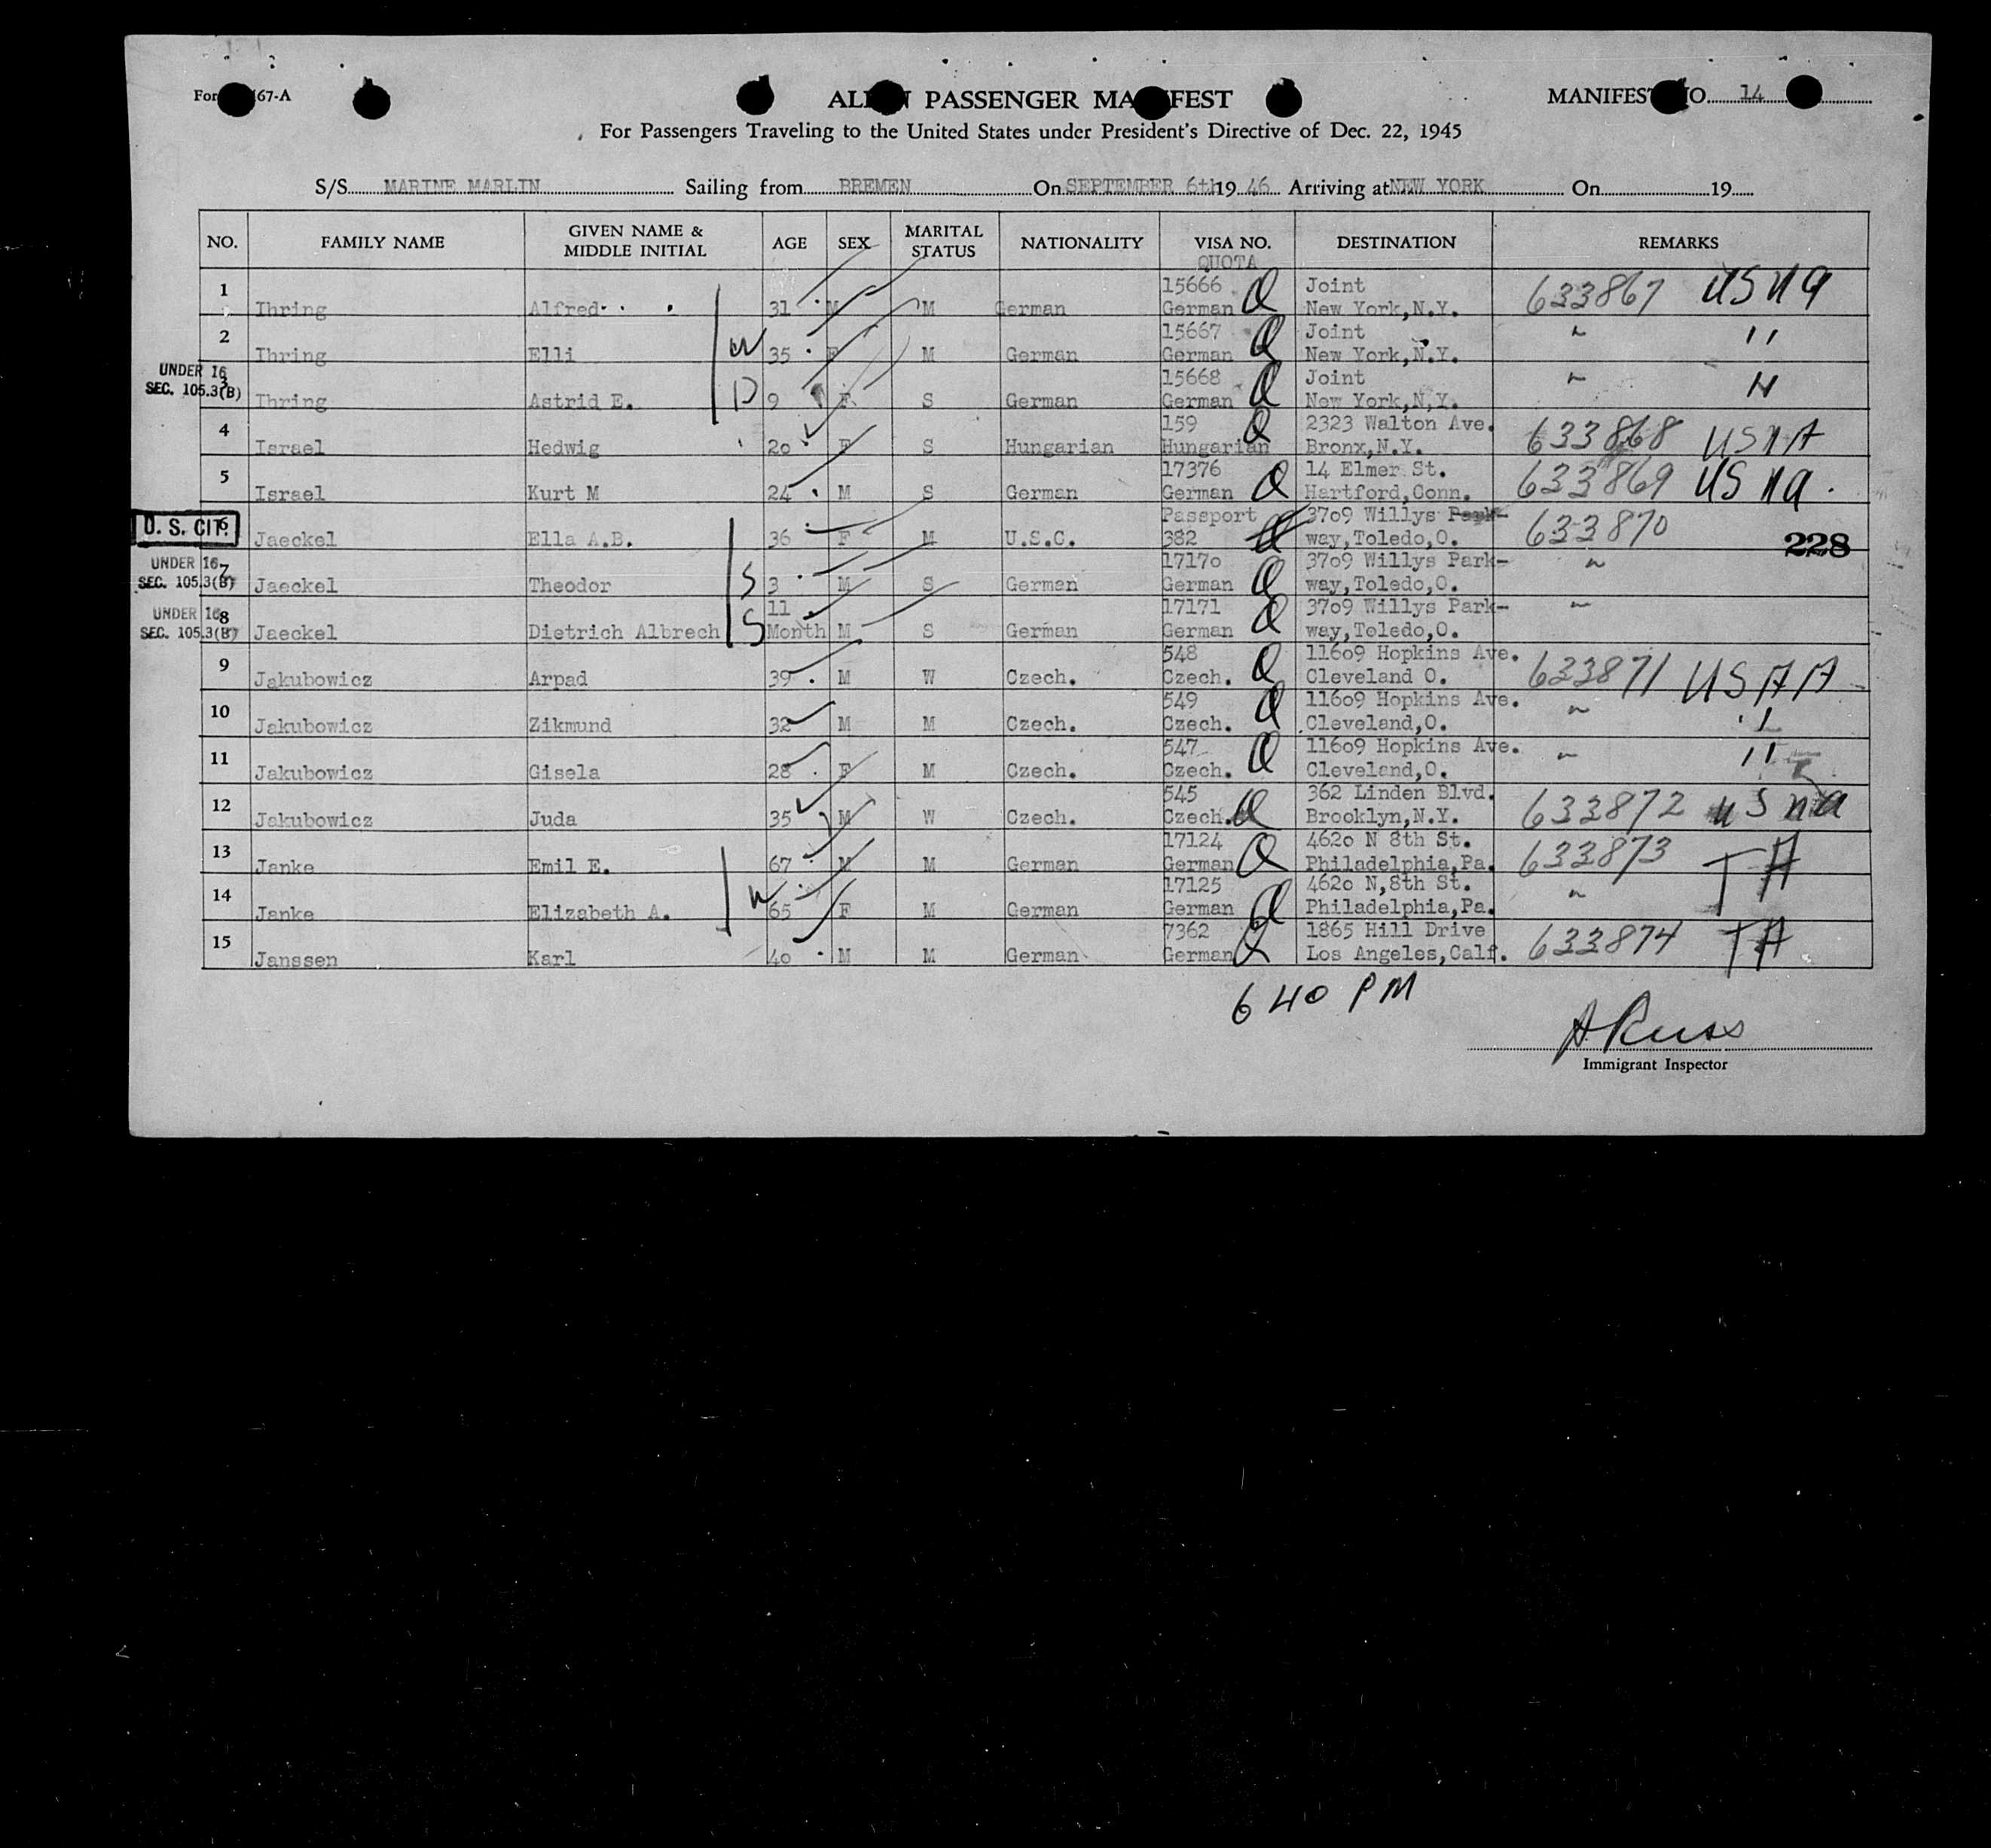 For 67-A
ALIEN PASSENGER MANIFEST
MANIFEST NO. 14
For Passengers Traveling to the United States under President's Directive of Dec. 22, 1945
S/S MARINE MARLIN Sailing from BREMEN On SEPTEMBER 6th 19 46 Arriving at NEW YORK On 19
NO. FAMILY NAME GIVEN NAME & MIDDLE INITIAL AGE SEX MARITAL STATUS NATIONALITY VISA NO. QUOTA DESTINATION REMARKS
1 Ihring Alfred 31 M M German 15666 German Q Joint New York,N.Y. 633867 USNA
2 Ihring Elli W 35 F M German 15667 German Q Joint New York,N.Y. " "
UNDER 16 SEC. 105.3(B) 3 Ihring Astrid E. D 9 F S German 15668 German Q Joint New York,N.Y. " "
4 Israel Hedwig 20 F S Hungarian 159 Hungarian Q 2323 Walton Ave. Bronx,N.Y. 633868 USNA
5 Israel Kurt M 24 M S German 17376 German Q 14 Elmer St. Hartford,Conn. 633869 USNA.
U. S. CIT. 6 Jaeckel Ella A.B. 36 F M U.S.C. Passport 382 3709 Willys Park-way,Toledo,O. 633870
228
UNDER 16 SEC. 105.3(B) 7 Jaeckel Theodor S 3 M S German 17170 German Q 3709 Willys Park-way,Toledo,O. "
UNDER 16 SEC. 105.3(B) 8 Jaeckel Dietrich Albrech S 11 Month M S German 17171 German Q 3709 Willys Park-way,Toledo,O. "
9 Jakubowicz Arpad 39 M W Czech. 548 Czech. Q 11609 Hopkins Ave. Cleveland O. 633871 USAA
10 Jakubowicz Zikmund 32 M M Czech. 549 Czech. Q 11609 Hopkins Ave. Cleveland,O. " "
11 Jakubowicz Gisela 28 F M Czech. 547 Czech. Q 11609 Hopkins Ave. Cleveland,O. " "
12 Jakubowicz Juda 35 M W Czech. 545 Czech. Q 362 Linden Blvd. Brooklyn,N.Y. 633872 USNA
13 Janke Emil E. 67 M M German 17124 German Q 4620 N 8th St. Philadelphia,Pa. 633873 TA
14 Janke Elizabeth A. W 65 F M German 17125 German Q 4620 N,8th St. Philadelphia,Pa. "
15 Janssen Karl 40 M M German 7362 German Q 1865 Hill Drive Los Angeles,Calf. 633874 TA
6 40 PM
A Russ
Immigrant Inspector